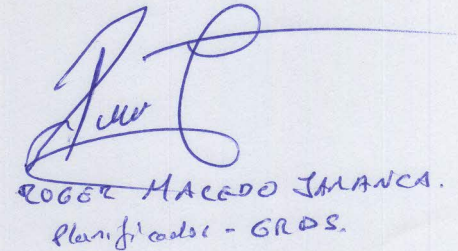 ROGER MACEDO JAMANCA.
Planificador - GRDS.